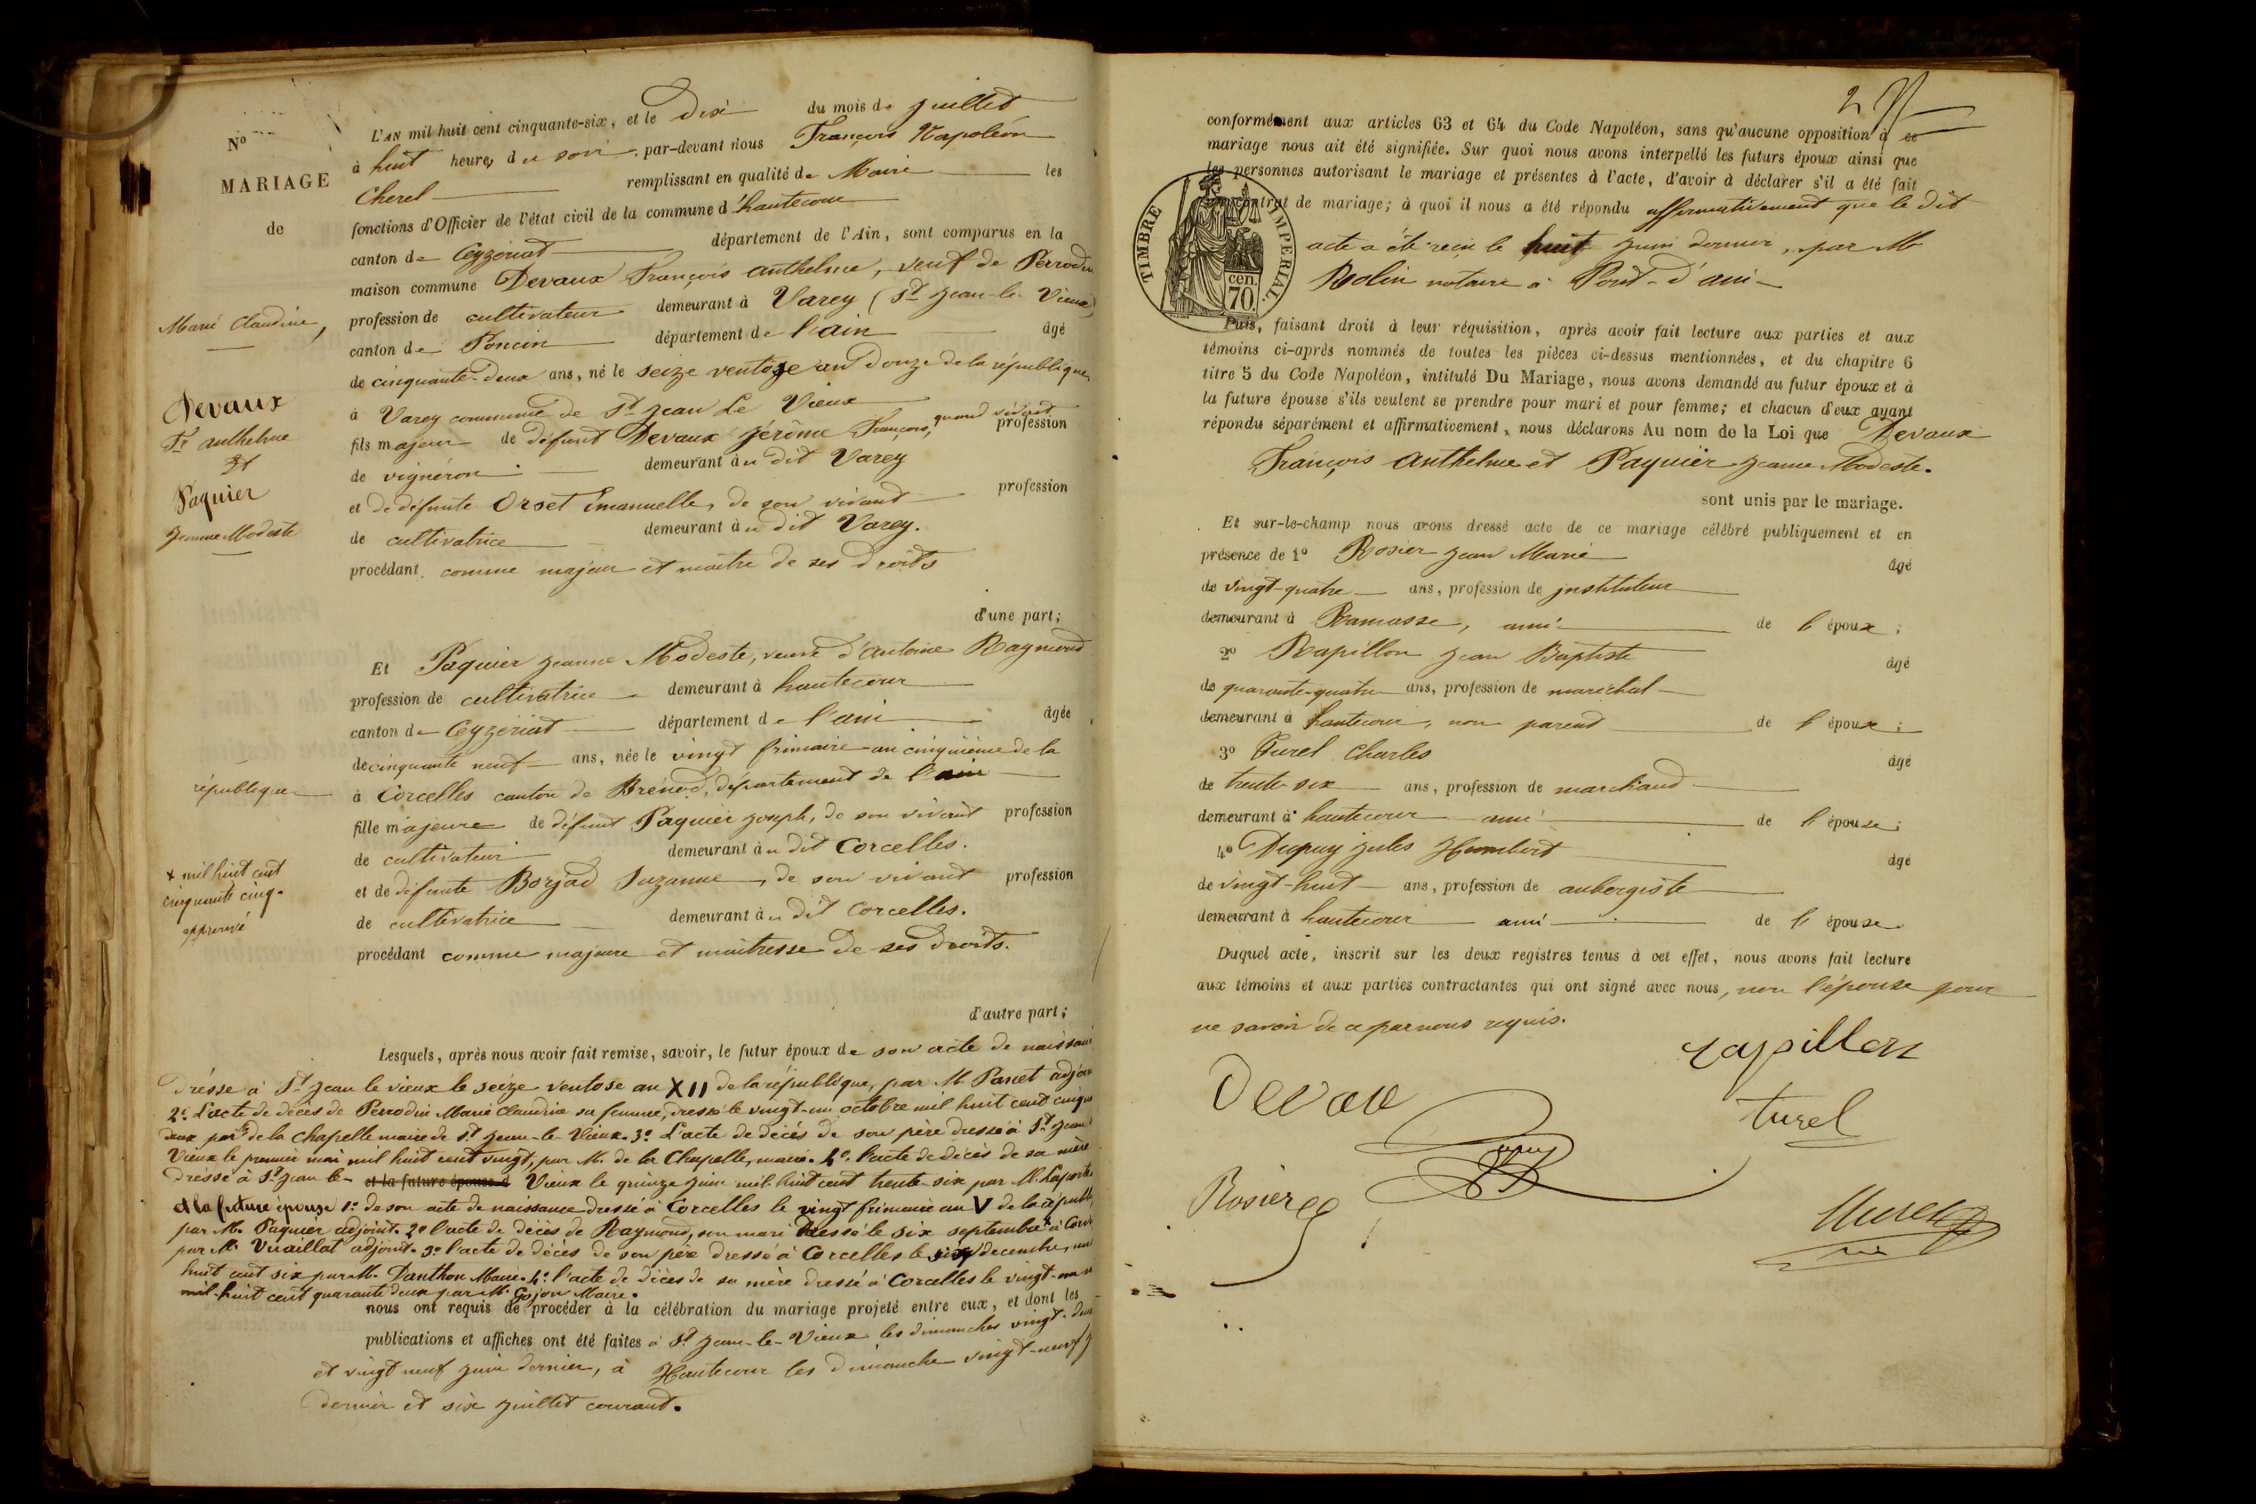 N°
MARIAGE
de
Marie Claudine,
Devaux
Fr. anthelme
Et
Paquier
Jeanne Modeste
république
x mil huit cent
cinquante cinq.
approuvé
L'AN mil huit cent cinquante-six, et le dix du mois de juillet
à huit heures du soir, par-devant nous François Napoléon
Cherel remplissant en qualité de Maire les
fonctions d'Officier de l'état civil de la commune d'hautecour
canton de Ceyzériat département de l'Ain, sont comparus en la
maison commune Devaux François anthelme, veuf de Perrodin
profession de cultivateur demeurant à Varey (St jean-le-Vieux)
canton de Poncin département de l'ain âgé
de cinquante-deux ans, né le seize ventose an Douze de la république
à Varey commune de St jean Le Vieux
fils majeur de défunt Devaux jérôme François, quand vivant profession
de vignéron demeurant au dit Varey
et de défunte Orset Emanuelle, de son vivant profession
de cultivatrice demeurant au dit Varey.
procédant comme majeur et maître de ses droits
d'une part;
Et Paquier jeanne Modeste, veuve d'antoine Raymond
profession de cultivatrice demeurant à hautecour
canton de Ceyzériat département de l'ain âgée
de cinquante neuf ans, née le vingt frimaire an cinquième de la
à Corcelles canton de Brénod, département de l'ain
fille majeure de défunt Paquier joseph, de son vivant profession
de cultivateur demeurant au dit Corcelles.
et de défunte Borjad Suzanne, de son vivant profession
de cultivatrice demeurant au dit Corcelles.
procédant comme majeure et maitresse de ses droits.
d'autre part;
Lesquels, après nous avoir fait remise, savoir, le futur époux de son acte de naissance
dressé à St jean le vieux le seize ventose an XII de la république, par M. Pancet adjoint
2° L'acte de décès de Perrodin Marie Claudine sa femme, dressé le vingt-un octobre mil huit cent cinquante
deux par M. de la Chapelle maire de St jean-le-Vieux. 3° L'acte de décès de son père dressé à St jean
Vieux le premier mai mil huit cent vingt, par M. de la Chapelle, maire. 4° l'acte de décès de sa mère
dressé à St jean-le- et la future épouse d Vieux le quinze juin mil huit cent trente-six par M. Laporte
et la future épouse 1° de son acte de naissance dressé à Corcelles le vingt frimaire an V de la républ
par M. Paquier adjoint. 2° l'acte de décès de Raymond, son mari dressé le six septembre x à Corc
par M. Vuaillat adjoint. 3° l'acte de décès de son père dressé à Corcelles le decembre, mil
huit cent six par M. Danthon Maire. 4° l'acte de décès de sa mère dressé à Corcelles le vingt-
mil-huit cent quarante deux par M. Gojon Maire.
nous ont requis de procéder à la célébration du mariage projeté entre eux, et dont les
publications et affiches ont été faites à St jean-le-Vieux les dimanches vingt-deux
et vingt neuf juin dernier, à Hautecour les dimanche vingt-neuf j
dernier et six juillet courant.
conformément aux articles 63 et 64 du Code Napoléon, sans qu'aucune opposition à ce
mariage nous ait été signifiée. Sur quoi nous avons interpellé les futurs époux ainsi que
les personnes autorisant le mariage et présentes à l'acte, d'avoir à déclarer s'il a été fait
contrat de mariage; à quoi il nous a été répondu affirmativement que le dit
acte a été reçu le huit juin dernier, par Me
Rolin notaire à Pont-d'ain
TIMBRE IMPERIAL.
cen.
70.
Puis, faisant droit à leur réquisition, après avoir fait lecture aux parties et aux
témoins ci-après nommés de toutes les pièces ci-dessus mentionnées, et du chapitre 6
titre 5 du Code Napoléon, intitulé Du Mariage, nous avons demandé au futur époux et à
la future épouse s'ils veulent se prendre pour mari et pour femme; et chacun d'eux ayant
répondu séparément et affirmativement, nous déclarons Au nom de la Loi que Devaux
François Anthelme et Paquier jeanne Modeste.
sont unis par le mariage.
Et sur-le-champ nous avons dressé acte de ce mariage célébré publiquement et en
présence de 1° Rosier jean Marie âgé
de vingt-quatre ans, profession de instituteur
demeurant à Ramasse, ami de l'époux;
2° Rapillon jean Baptiste âgé
de quarante-quatre ans, profession de maréchal
demeurant à hautecour, non parent de l'époux;
3° Turel Charles âgé
de trente-six ans, profession de marchand
demeurant à hautecour ami de l'épouse;
4° Dupuy jules Humbert âgé
de vingt-huit ans, profession de aubergiste
demeurant à hautecour ami de l'épouse
Duquel acte, inscrit sur les deux registres tenus à cet effet, nous avons fait lecture
aux témoins et aux parties contractantes qui ont signé avec nous, non l'épouse pour
ne savoir de ce par nous requis.
rapillon
Devau
turel
Rosier